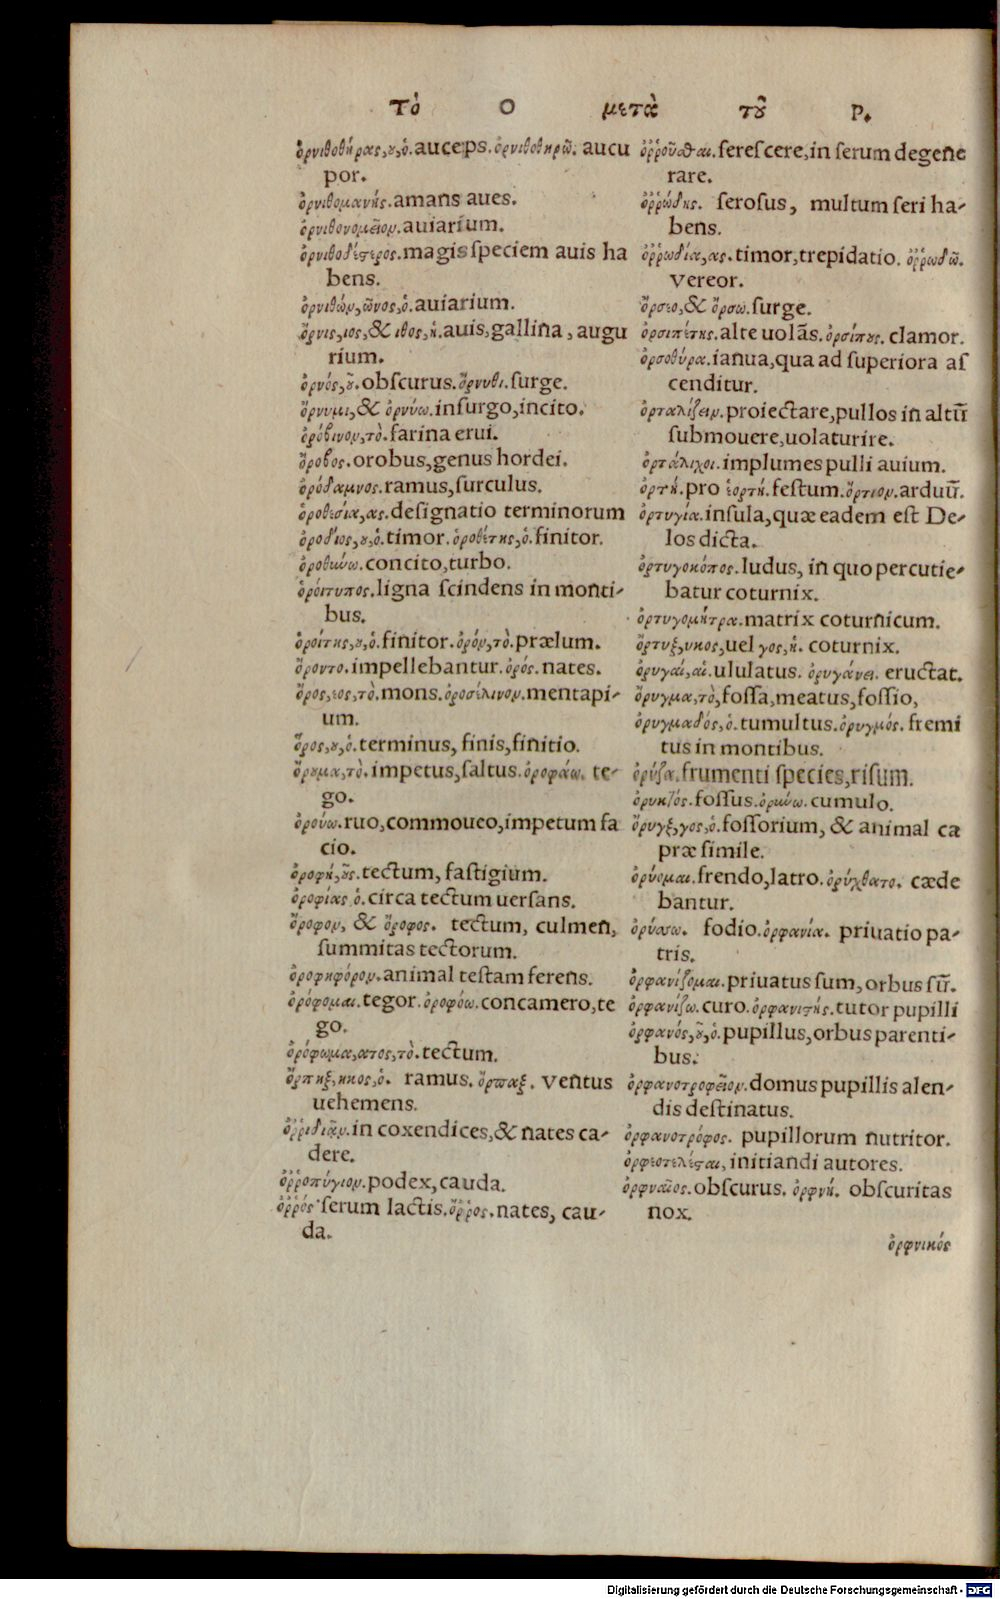 Τὸ Ο μετὰ τοῦ Ρ.
ὀρνιθοθήρας,ου,ὁ.auceps.ὀρνιθοθηρῶ. aucu
por.
ὀρνιθομανής.amans aues.
ὀρνιθονομεῖον.auiarium.
ὀρνιθοδέστερος.magis speciem auis ha
bens.
ὀρνιθών,ῶνος,ὁ.auiarium.
ὄρνις,ιος,& ιθος,ἡ.auis,gallina, augu
rium.
ὀρνός,οῦ.obscurus.ὄρνυθι.surge.
ὄρνυμι,& ὀρνύω.insurgo,incito.
ὀρόβινον,τὸ.farina erui.
ὄροβος.orobus,genus hordei.
ὀρόδαμνος.ramus,surculus.
ὁροθεσία,ας.designatio terminorum
ὀροδιος,ου,ὁ.timor.ὁροθέτης,ὁ.finitor.
ὀροθύνω.concito,turbo.
ὀροίτυπος.ligna scindens in monti-
bus.
ὀροίτης,ου,ὁ.finitor.ὀρόν,τὸ.prælum.
ὄροντο.impellebantur.ὀρός.nates.
ὄρος,εος,τὸ.mons.ὀροσέλινον.mentapi-
um.
ὅρος,ου,ὁ.terminus, finis,finitio.
ὄρουμα,τὸ.impetus,saltus.ὀροφάω. te-
go.
ὀρούω.ruo,commoueo,impetum fa
cio.
ὀροφή,οῦς.tectum, fastigium.
ὀροφίας ὁ.circa tectum uersans.
ὄροφον, & ὄροφος. tectum, culmen,
summitas tectorum.
ὀροφηφόρον.animal testam ferens.
ὀρόφομαι.tegor.ὀροφόω.concamero,te
go.
ὀρόφωμα,ατος,τὸ.tectum.
ὄρπηξ,ηκος,ὁ. ramus.ὄρπαξ. ventus
uehemens.
ὀῤῥιδιᾷν.in coxendices,& nates ca-
dere.
ὀῤῥοπύγιον.podex,cauda.
ὀῤῥός serum lactis.ὄῤῥος.nates, cau-
da.
ὀῤῥοῦσθαι.ferescere,in serum degene
rare.
ὀῤῥώδης. serosus, multum seri ha-
bens.
ὀῤῥωδία,ας.timor,trepidatio. ὀῤῥωδῶ.
vereor.
ὄρσεο,& ὄρσω.surge.
ὀρσιπέτης.alte uolãs.ὀρσίπους. clamor.
ὀρσοθύρα.ianua,qua ad superiora as
cenditur.
ὀρταλίζειν.proiectare,pullos in altũ
submouere,uolaturire.
ὀρτάλιχοι.implumes pulli auium.
ὁρτή.pro ἑορτή.festum.ὄρτιον.arduũ.
ὀρτυγία.insula,quæ eadem est De-
los dicta.
ὀρτυγοκόπος.ludus, in quo percutie-
batur coturnix.
ὀρτυγομήτρα.matrix coturnicum.
ὄρτυξ,υκος,uel γος,ἡ. coturnix.
ὀρυγαί,αἱ.ululatus. ὀρυγάνει. eructat.
ὄρυγμα,τὸ,fossa,meatus,fossio,
ὀρυγμαδός,ὁ.tumultus.ὀρυγμός. fremi
tus in montibus.
ὀρύζα.frumenti species,risum.
ὀρυκτός.fossus.ὀρκύνω.cumulo.
ὄρυγξ,γος,ὁ.fossorium, & animal ca
præ simile.
ὀρύομαι.frendo,latro.ὀρύχθατο. cæde
bantur.
ὀρύσσω. fodio.ὀρφανία. priuatio pa-
tris.
ὀρφανίζομαι.priuatus sum,orbus sũ.
ὀρφανίζω.curo.ὀρφανιστής.tutor pupilli
ὀρφανός,οῦ,ὁ.pupillus,orbus parenti-
bus.
ὀρφανοτροφεῖον.domus pupillis alen-
dis destinatus.
ὀρφανοτρόφος. pupillorum nutritor.
ὀρφεοτελέσται,initiandi autores.
ὀρφναῖος.obscurus. ὀρφνή. obscuritas
nox.
ὀρφνικός
Digitalisierung gefördert durch die Deutsche Forschungsgemeinschaft - DFG